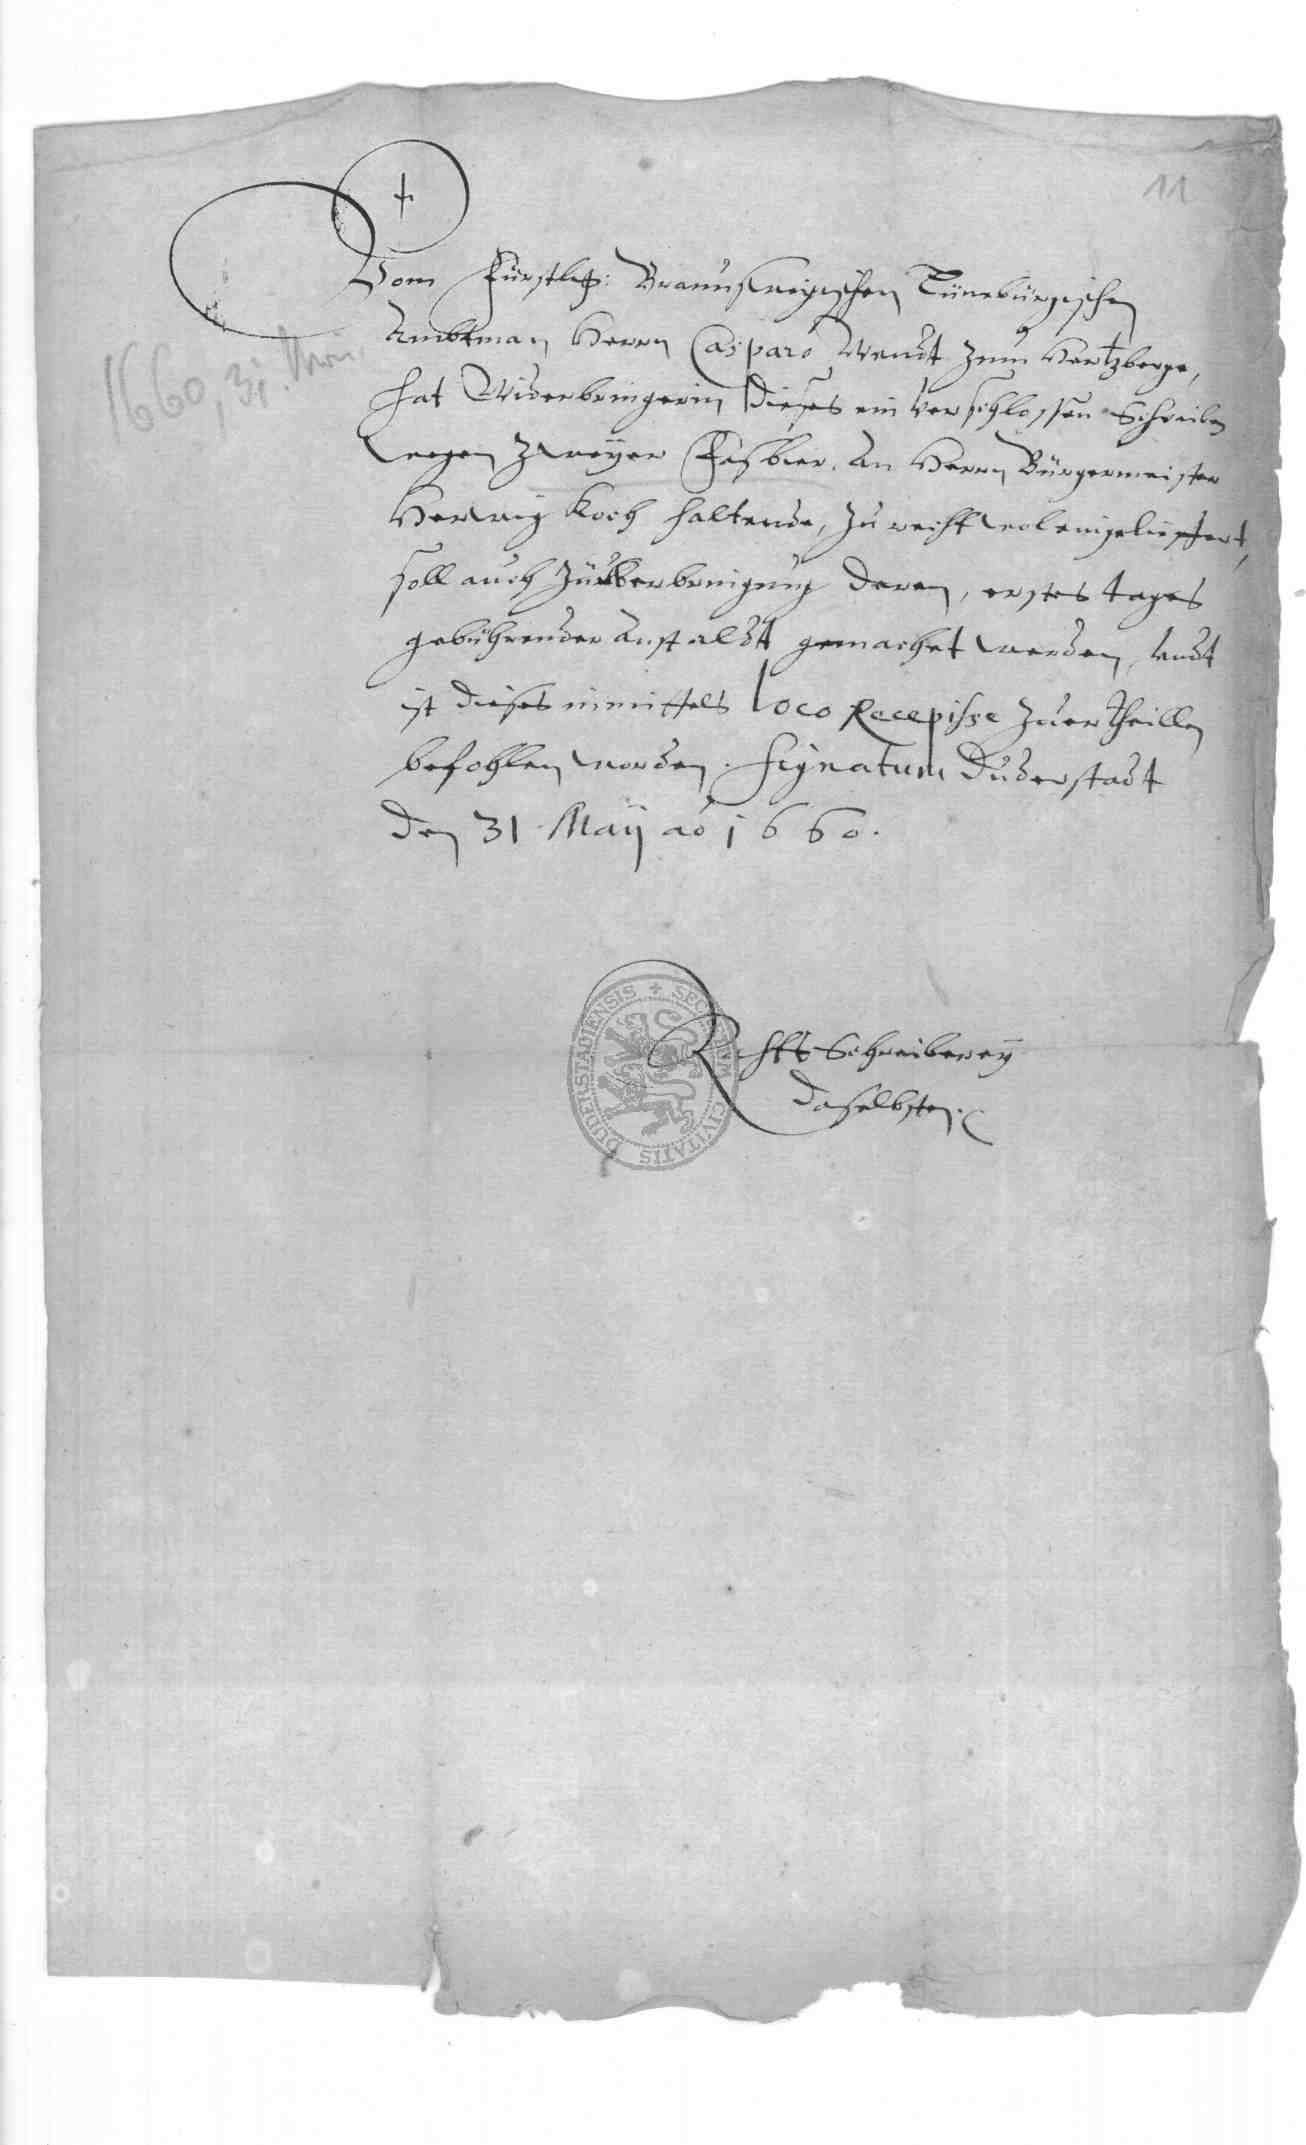 11
Vom Fürstlich: Braunschweigischen Lüneburgischen
1660, 31.
Ambtman Herrn Casparo Wendt zum Hertzberge,
hat Widerbringerin dieses ein verschlossen Schreiben
wegen zweyer Fas bier. An Herrn Bürgermeister
Herwig Koch haltende, zu recht wol eingeliefert,
soll auch zu überbringung deren, erstes tages
gebührender anstaldt gemachet werden, undt
ist dieses inmittels loco Recepisse zu ertheillen
befohlen worden. Signatum Duderstadt
den 31 Maÿ aō 1660.
SECRETUM CIVITATIS DUDERSTADIENSIS
Schreibereÿ
Daselbsten.